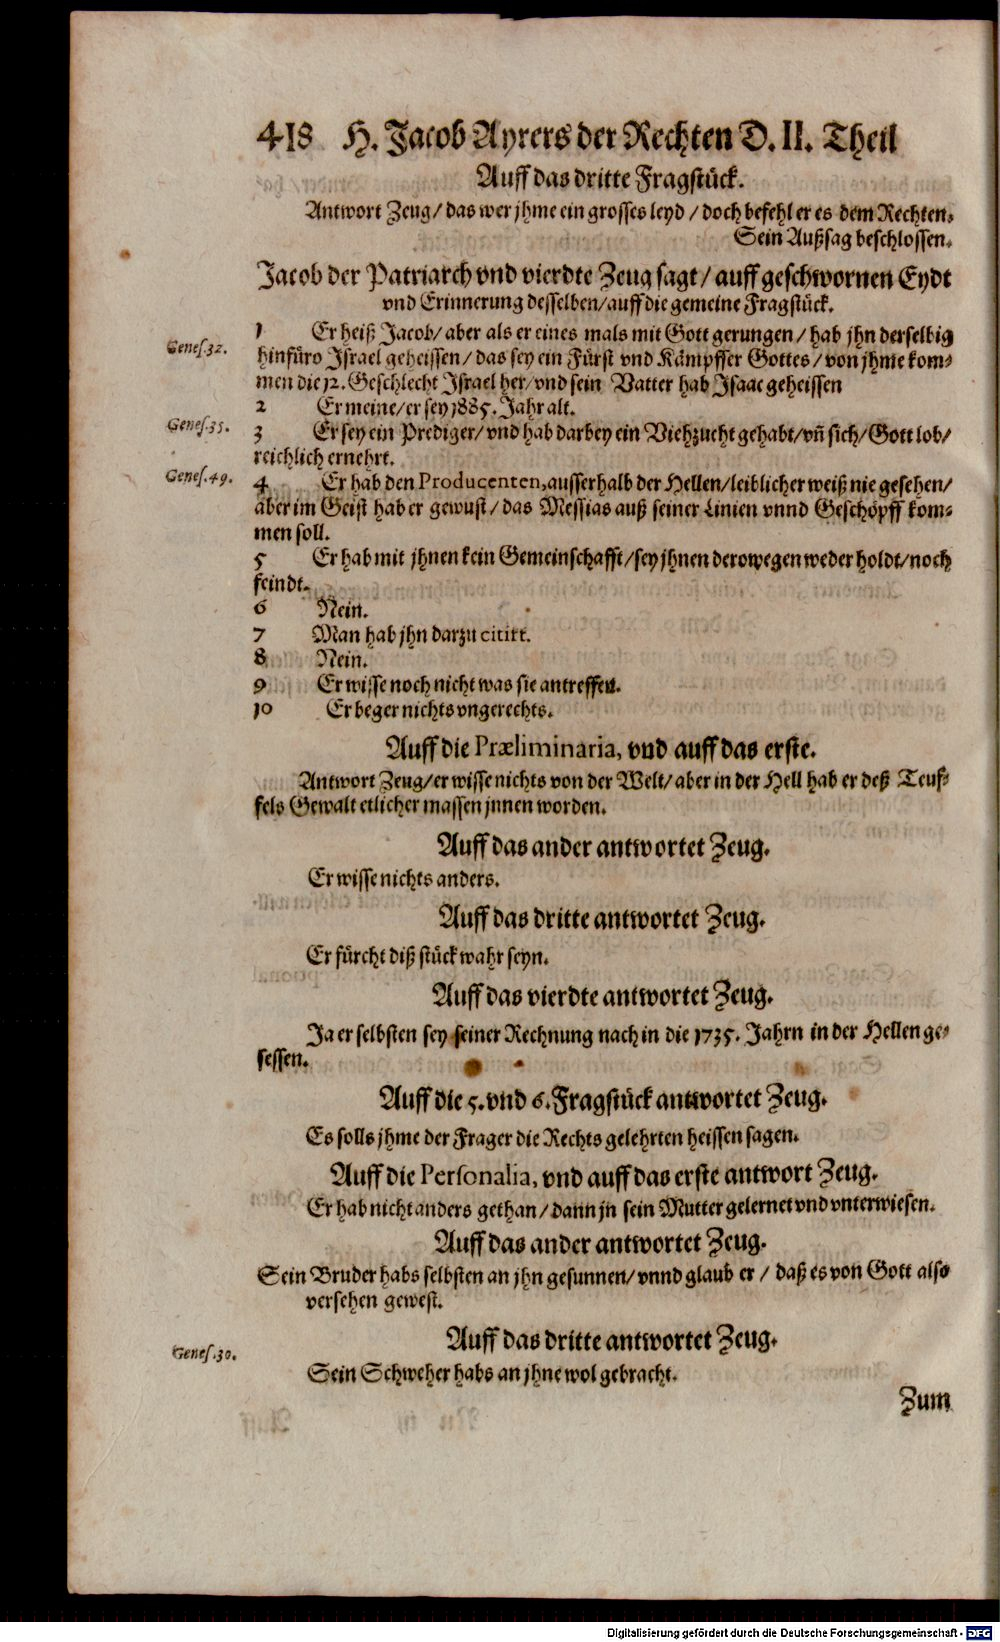 418 H. Jacob Ayrers der Rechten D. II. Theil
Auff das dritte Fragstück.
Antwort Zeug/ das wer jhme ein grosses leyd / doch befehl er es dem Rechten.
Sein Außsag beschlossen.
Jacob der Patriarch vnd vierdte Zeug sagt/ auff geschwornen Eydt
vnd Erinnerung desselben/ auff die gemeine Fragstück.
1 Er heiß Jacob/ aber als er eines mals mit Gott gerungen / hab jhn derselbig
Genes.32.
hinfüro Israel geheissen/ das sey ein Fürst vnd Kämpffer Gottes/ von jhme kom-
men die 12. Geschlecht Israel her/ vnd sein Vatter hab Isaac geheissen
2 Er meine/ er sey 1885. Jahr alt.
Genes.35.
3 Er sey ein Prediger/ vnd hab darbey ein Viehzucht gehabt/ vñ sich/ Gott lob/
reichlich ernehrt.
Genes.49.
4 Er hab den Producenten, ausserhalb der Hellen/ leiblicher weiß nie gesehen/
aber im Geist hab er gewust/ das Messias auß seiner Linien vnnd Geschöpff kom-
men soll.
5 Er hab mit jhnen kein Gemeinschafft/ sey jhnen derowegen weder holdt/ noch
feindt.
6 Nein.
7 Man hab jhn darzu citirt.
8 Nein.
9 Er wisse noch nicht was sie antreffen.
10 Er beger nichts vngerechts.
Auff die Præliminaria, vnd auff das erste.
Antwort Zeug/ er wisse nichts von der Welt/ aber in der Hell hab er deß Teuf-
fels Gewalt etlicher massen jnnen worden.
Auff das ander antwortet Zeug.
Er wisse nichts anders.
Auff das dritte antwortet Zeug.
Er fürcht diß stück wahr seyn.
Auff das vierdte antwortet Zeug.
Ja er selbsten sey seiner Rechnung nach in die 1735. Jahrn in der Hellen ge-
sessen.
Auff die 5. vnd 6. Fragstück antwortet Zeug.
Es solls jhme der Frager die Rechts gelehrten heissen sagen.
Auff die Personalia, vnd auff das erste antwort Zeug.
Er hab nicht anders gethan / dann jn sein Mutter gelernet vnd vnterwiesen.
Auff das ander antwortet Zeug.
Sein Bruder habs selbsten an jhn gesunnen/ vnnd glaub er / daß es von Gott also
versehen gewest.
Auff das dritte antwortet Zeug.
Genes.30.
Sein Schweher habs an jhne wol gebracht.
Zum
Digitalisierung gefördert durch die Deutsche Forschungsgemeinschaft - DFG